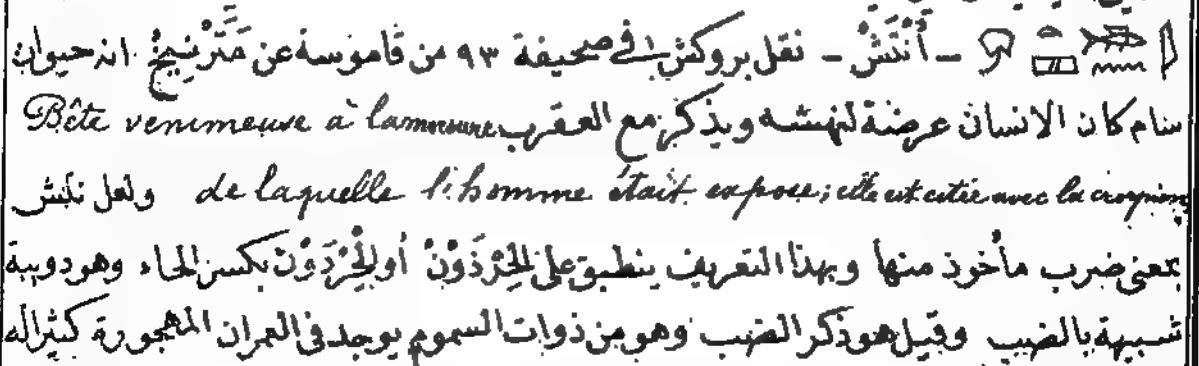 – أَنْتَشْ – نقل بروكش في صحيفة ٩٣ من قاموسة عن مَتَرْنِيخْ انه حيوان
سام كان الانسان عرضة لنهشه ويذكر مع العقرب Bête venimeuse à la morsure
de laquelle l'homme était expose; elle est citée avec le scorpion ولعل
بمعنى ضرب مأخوذ منها وبهذا التعريف ينطبق على الحِرْذَوْنْ أو الحِرْدَوْن بكسر الحاء وهو دويبة
شبيهة بالضب وقيل هو ذكر الضب وهو من ذوات السموم يوجد في العمران المهجورة كثيرا له